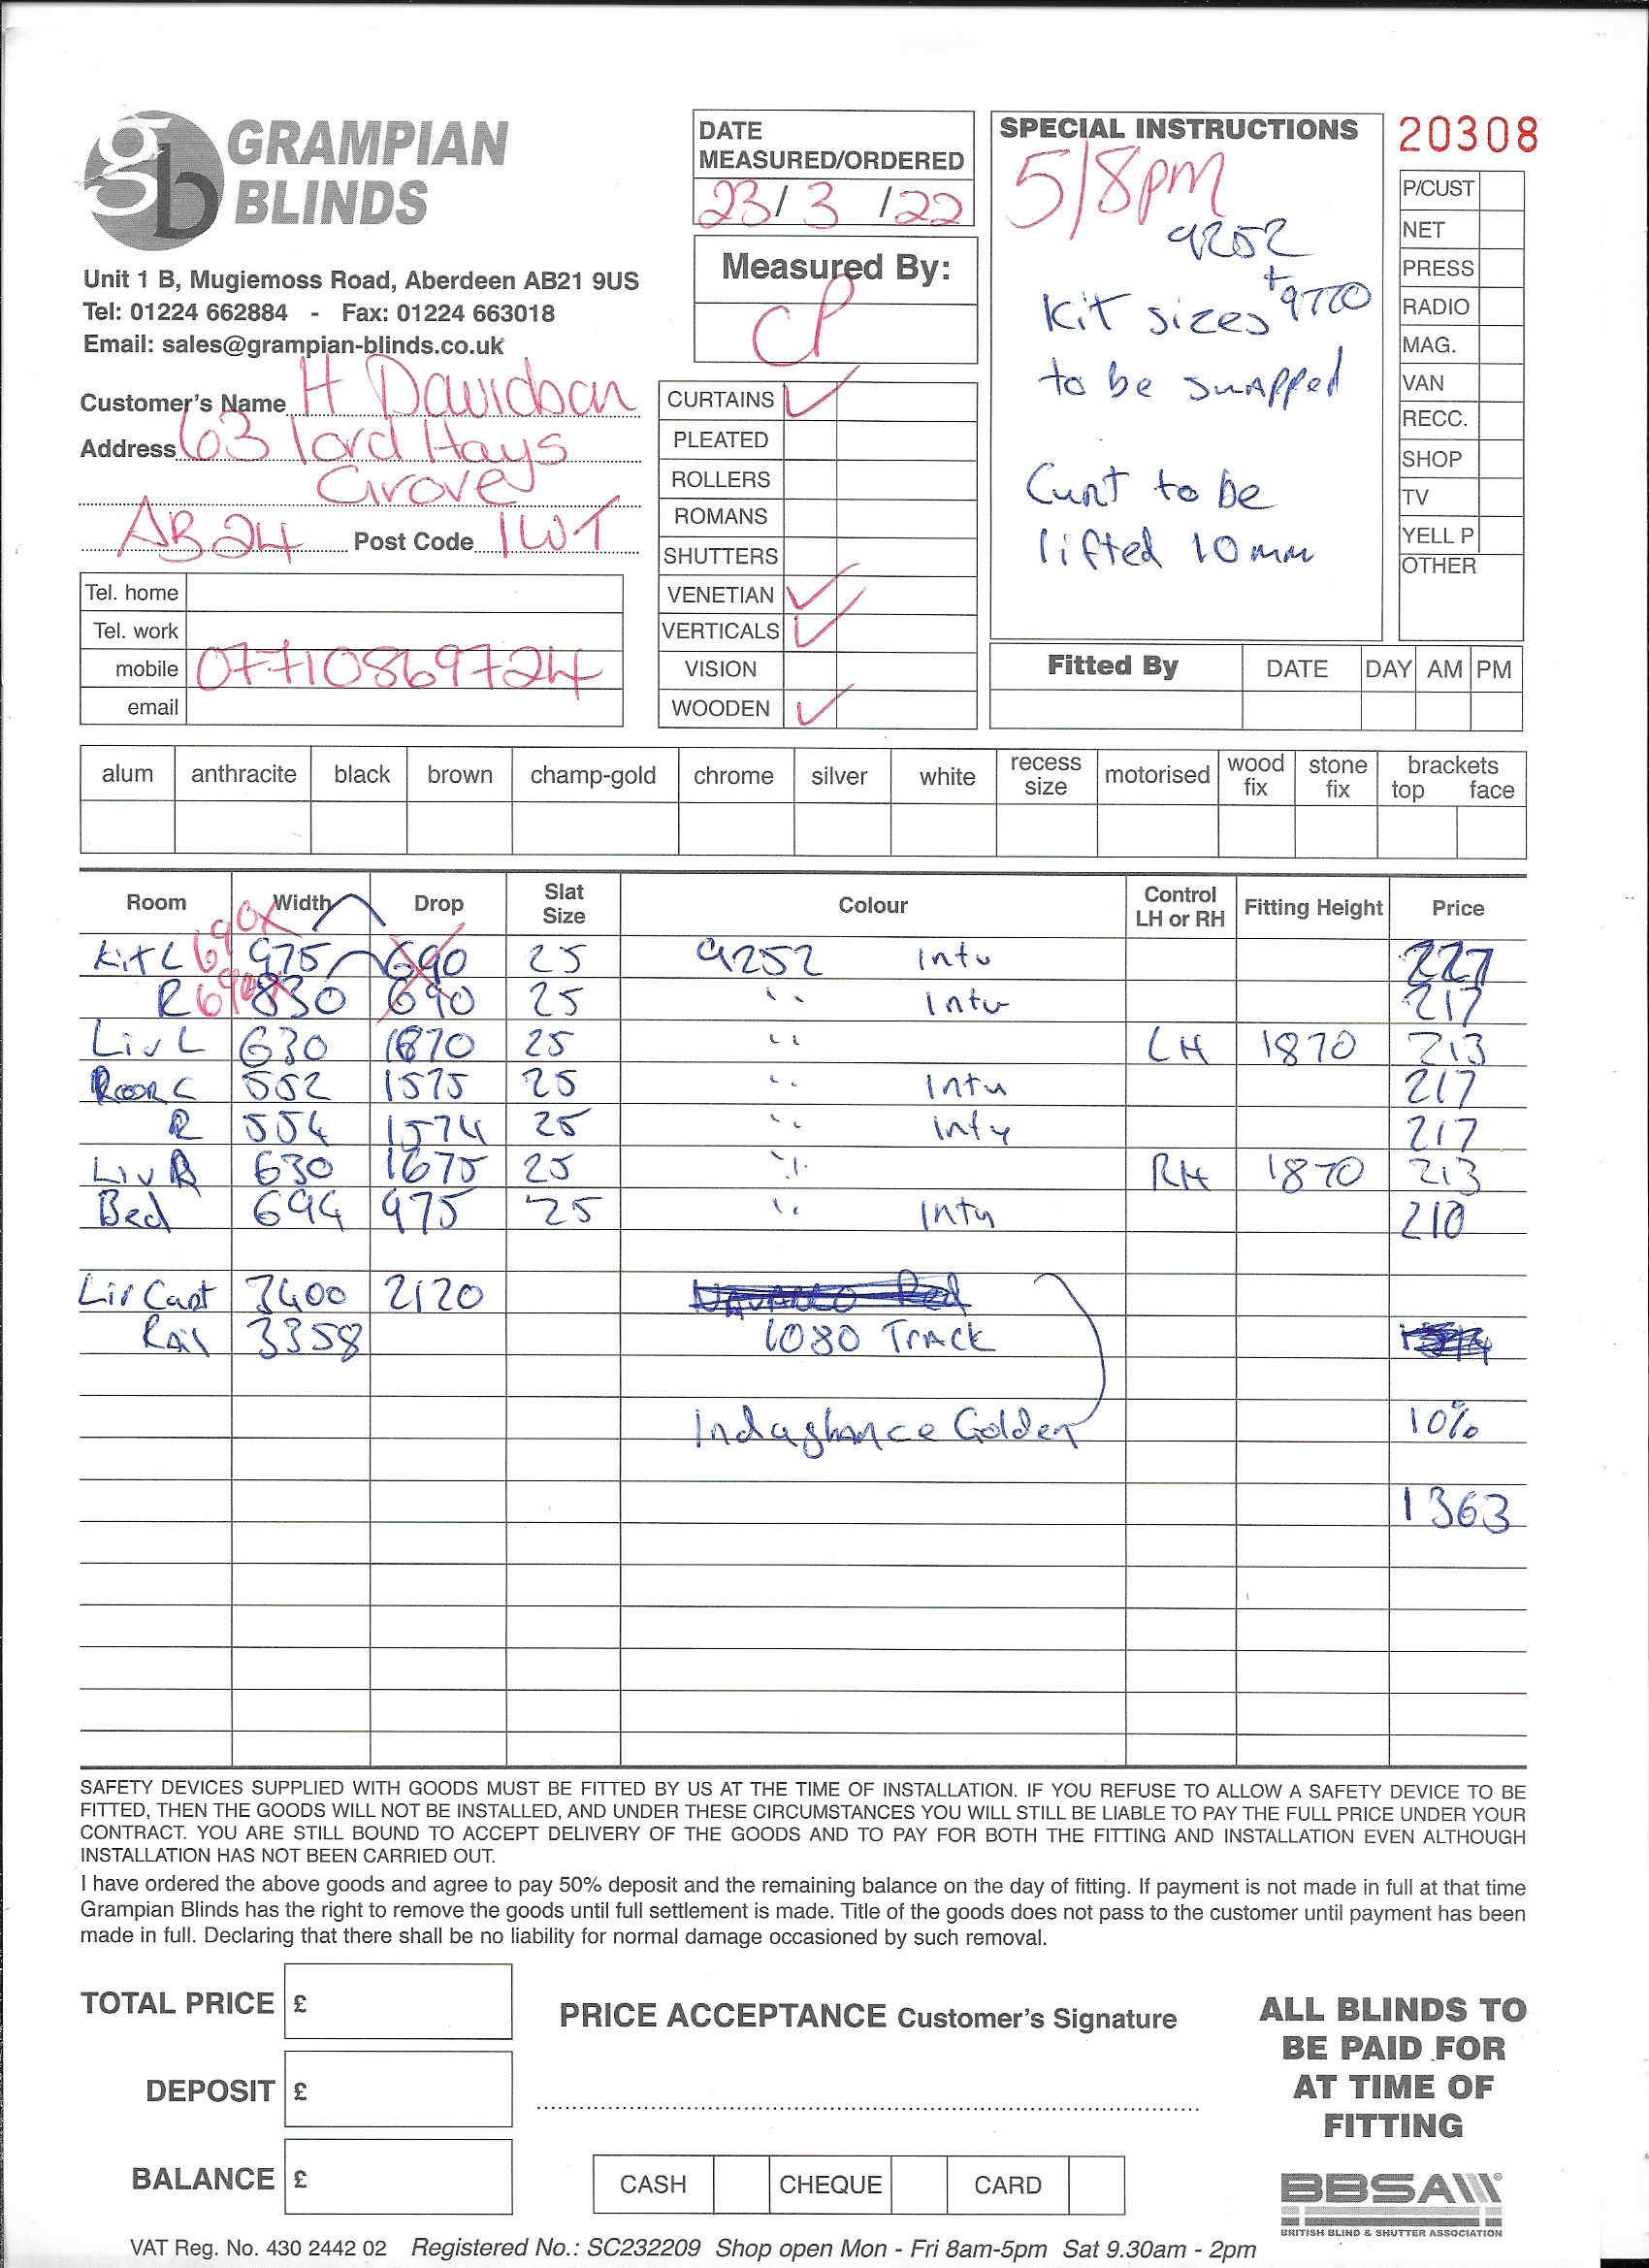 gb GRAMPIAN BLINDS
Unit 1 B, Mugiemoss Road, Aberdeen AB21 9US
Tel: 01224 662884 - Fax: 01224 663018
Email: sales@grampian-blinds.co.uk
Customer's Name H Davidson
Address 63 lord Hays
Grove
AB24 Post Code 1WT
Tel. home
Tel. work
mobile 07710869724
email
DATE
MEASURED/ORDERED
23/3/22
Measured By:
CP
CURTAINS ✓
PLEATED
ROLLERS
ROMANS
SHUTTERS
VENETIAN ✓
VERTICALS ✓
VISION
WOODEN ✓
SPECIAL INSTRUCTIONS
5/8pm
9252
+9770
Kit sizes
to be swapped
Curt to be
lifted 10mm
20308
P/CUST
NET
PRESS
RADIO
MAG.
VAN
RECC.
SHOP
TV
YELL P
OTHER
Fitted By DATE DAY AM PM
alum anthracite black brown champ-gold chrome silver white recess size motorised wood fix stone fix brackets top face
Room Width Drop Slat Size Colour Control LH or RH Fitting Height Price
Kit L 690x 975 690 25 9252 Intu 227
R 690x 830 690 25 " Intu 217
Liv L 630 1870 25 " LH 1870 213
Door L 552 1575 25 " Intu 217
R 554 1574 25 " Intu 217
Liv R 630 1675 25 " RH 1870 213
Bed 694 975 25 " Intu 210
Liv Curt 3400 2120 Navarro Red
Rail 3358 1080 Track
Golden 10%
1363
SAFETY DEVICES SUPPLIED WITH GOODS MUST BE FITTED BY US AT THE TIME OF INSTALLATION. IF YOU REFUSE TO ALLOW A SAFETY DEVICE TO BE
FITTED, THEN THE GOODS WILL NOT BE INSTALLED, AND UNDER THESE CIRCUMSTANCES YOU WILL STILL BE LIABLE TO PAY THE FULL PRICE UNDER YOUR
CONTRACT. YOU ARE STILL BOUND TO ACCEPT DELIVERY OF THE GOODS AND TO PAY FOR BOTH THE FITTING AND INSTALLATION EVEN ALTHOUGH
INSTALLATION HAS NOT BEEN CARRIED OUT.
I have ordered the above goods and agree to pay 50% deposit and the remaining balance on the day of fitting. If payment is not made in full at that time
Grampian Blinds has the right to remove the goods until full settlement is made. Title of the goods does not pass to the customer until payment has been
made in full. Declaring that there shall be no liability for normal damage occasioned by such removal.
TOTAL PRICE £
DEPOSIT £
BALANCE £
PRICE ACCEPTANCE Customer's Signature
CASH CHEQUE CARD
ALL BLINDS TO
BE PAID FOR
AT TIME OF
FITTING
BBSA
BRITISH BLIND & SHUTTER ASSOCIATION
VAT Reg. No. 430 2442 02 Registered No.: SC232209 Shop open Mon - Fri 8am-5pm Sat 9.30am - 2pm